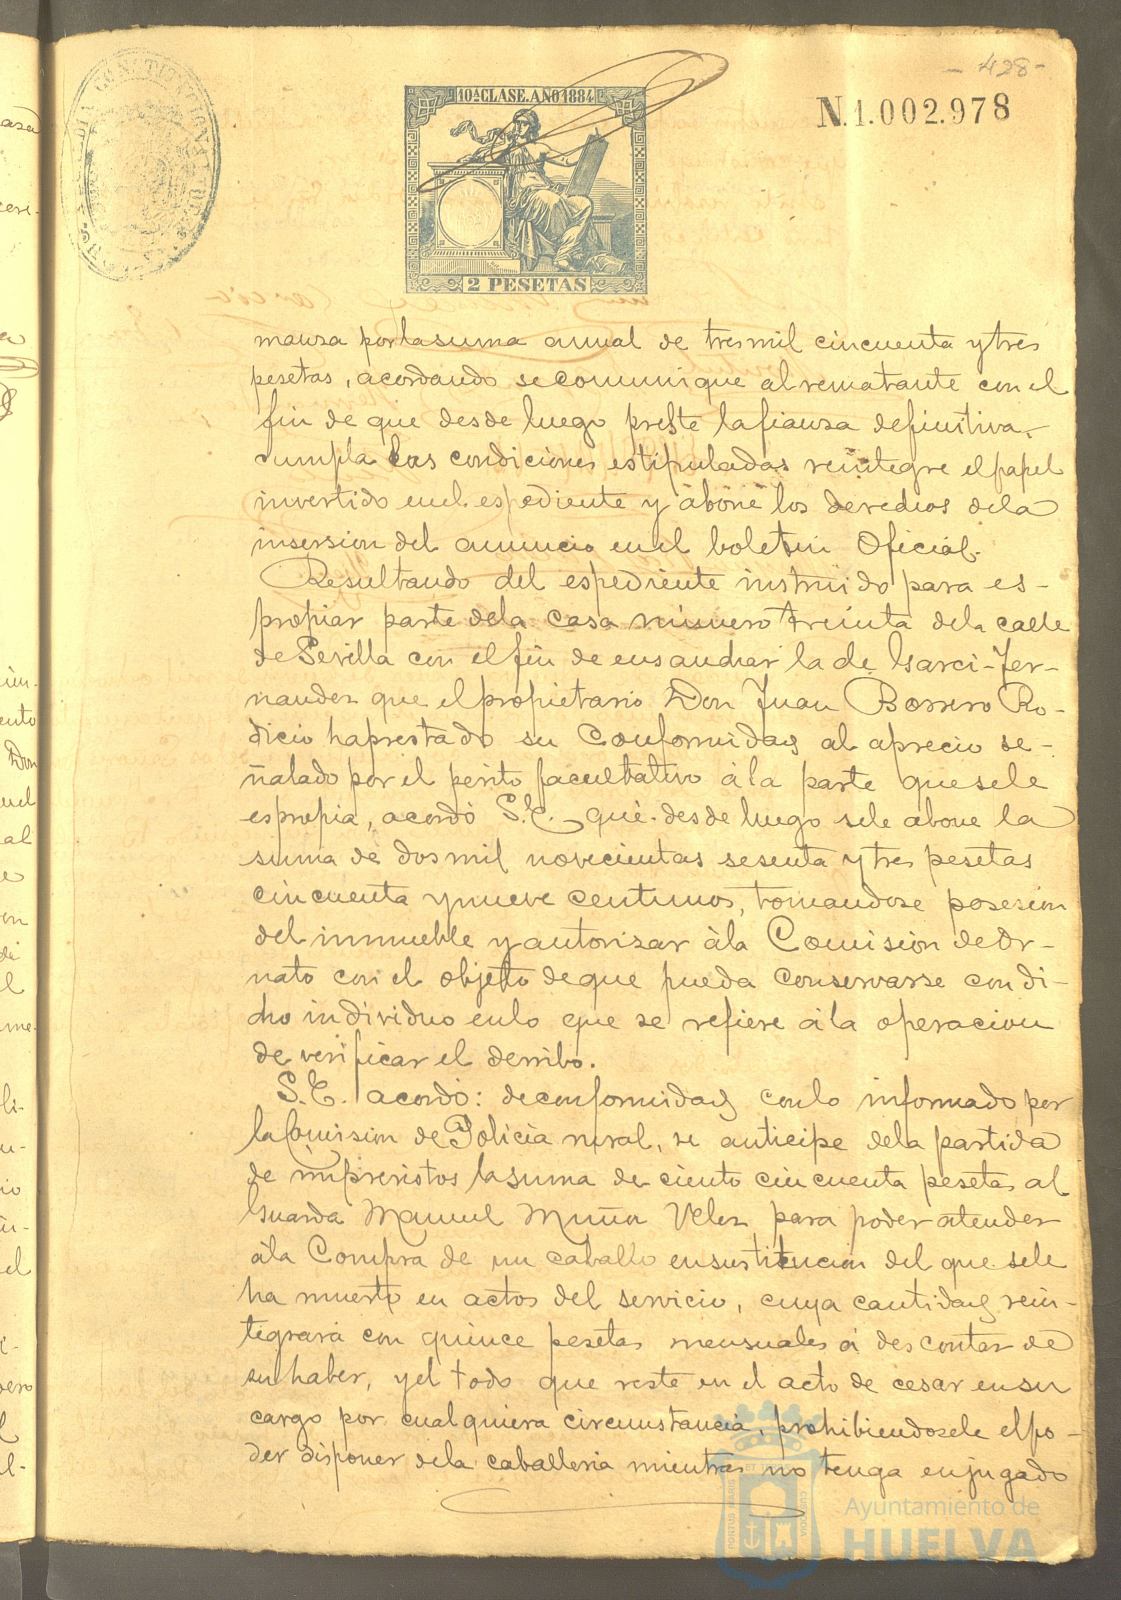 - 428 -
10ª CLASE. AÑO 1884
N.1.002.978
2 PESETAS
manza por la suma anual de tres mil cincuenta y tres
pesetas, acordando se comunique al rematante con el
fin de que desde luego preste la fianza definitiva,
cumpla las condiciones estipuladas reintegre el papel
invertido en el espediente y abone los derechos de la
insersion del anuncio en el boletin Oficial.
Resultando del espediente instruido para es-
propiar parte de la casa número treinta de la calle
de Sevilla con el fin de ensanchar la de Garci-Fer-
nandez que el propietario Don Juan Borrero Ro-
dicio ha prestado su Conformidad al aprecio se-
ñalado por el perito facultativo á la parte que se le
espropia, acordó S.E. que desde luego se le abone la
suma de dos mil novecientas sesenta y tres pesetas
cincuenta y nueve centimos, tomandose posesion
del inmueble y autorizar á la Comision de Or-
nato con el objeto de que pueda Conservarse con di-
cho individuo en lo que se refiere á la operacion
de verificar el derribo.
S.E. acordó: de conformidad con lo informado por
la Comision de Policia rural, se anticipe de la partida
de imprevistos la suma de ciento cincuenta pesetas al
Guarda Manuel Muñoz Velez para poder atender
á la Compra de un caballo en sustitucion del que se le
ha muerto en actos del servicio, cuya cantidad rein-
tegrará con quince pesetas mensuales á descontar de
su haber, y el todo que reste en el acto de cesar en su
cargo por cualquiera circunstancia, prohibiendosele el po-
der disponer de la caballeria mientras no tenga enjugado
Ayuntamiento de
HUELVA